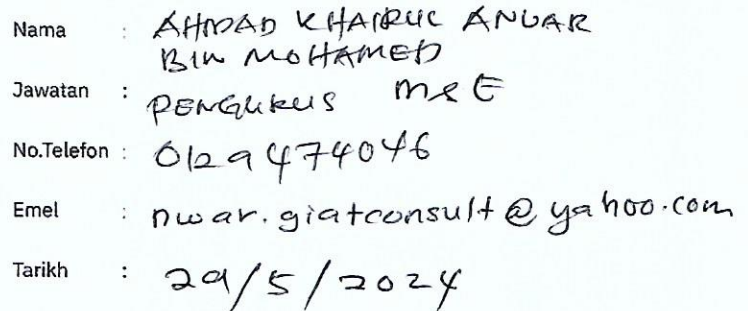 Nama : AHMAD KHAIRUL ANUAR
BIN MOHAMED
Jawatan : PENGURUS M&E
No.Telefon : 0129474046
Emel : nwar.giatconsult@yahoo.com
Tarikh : 29/5/2024